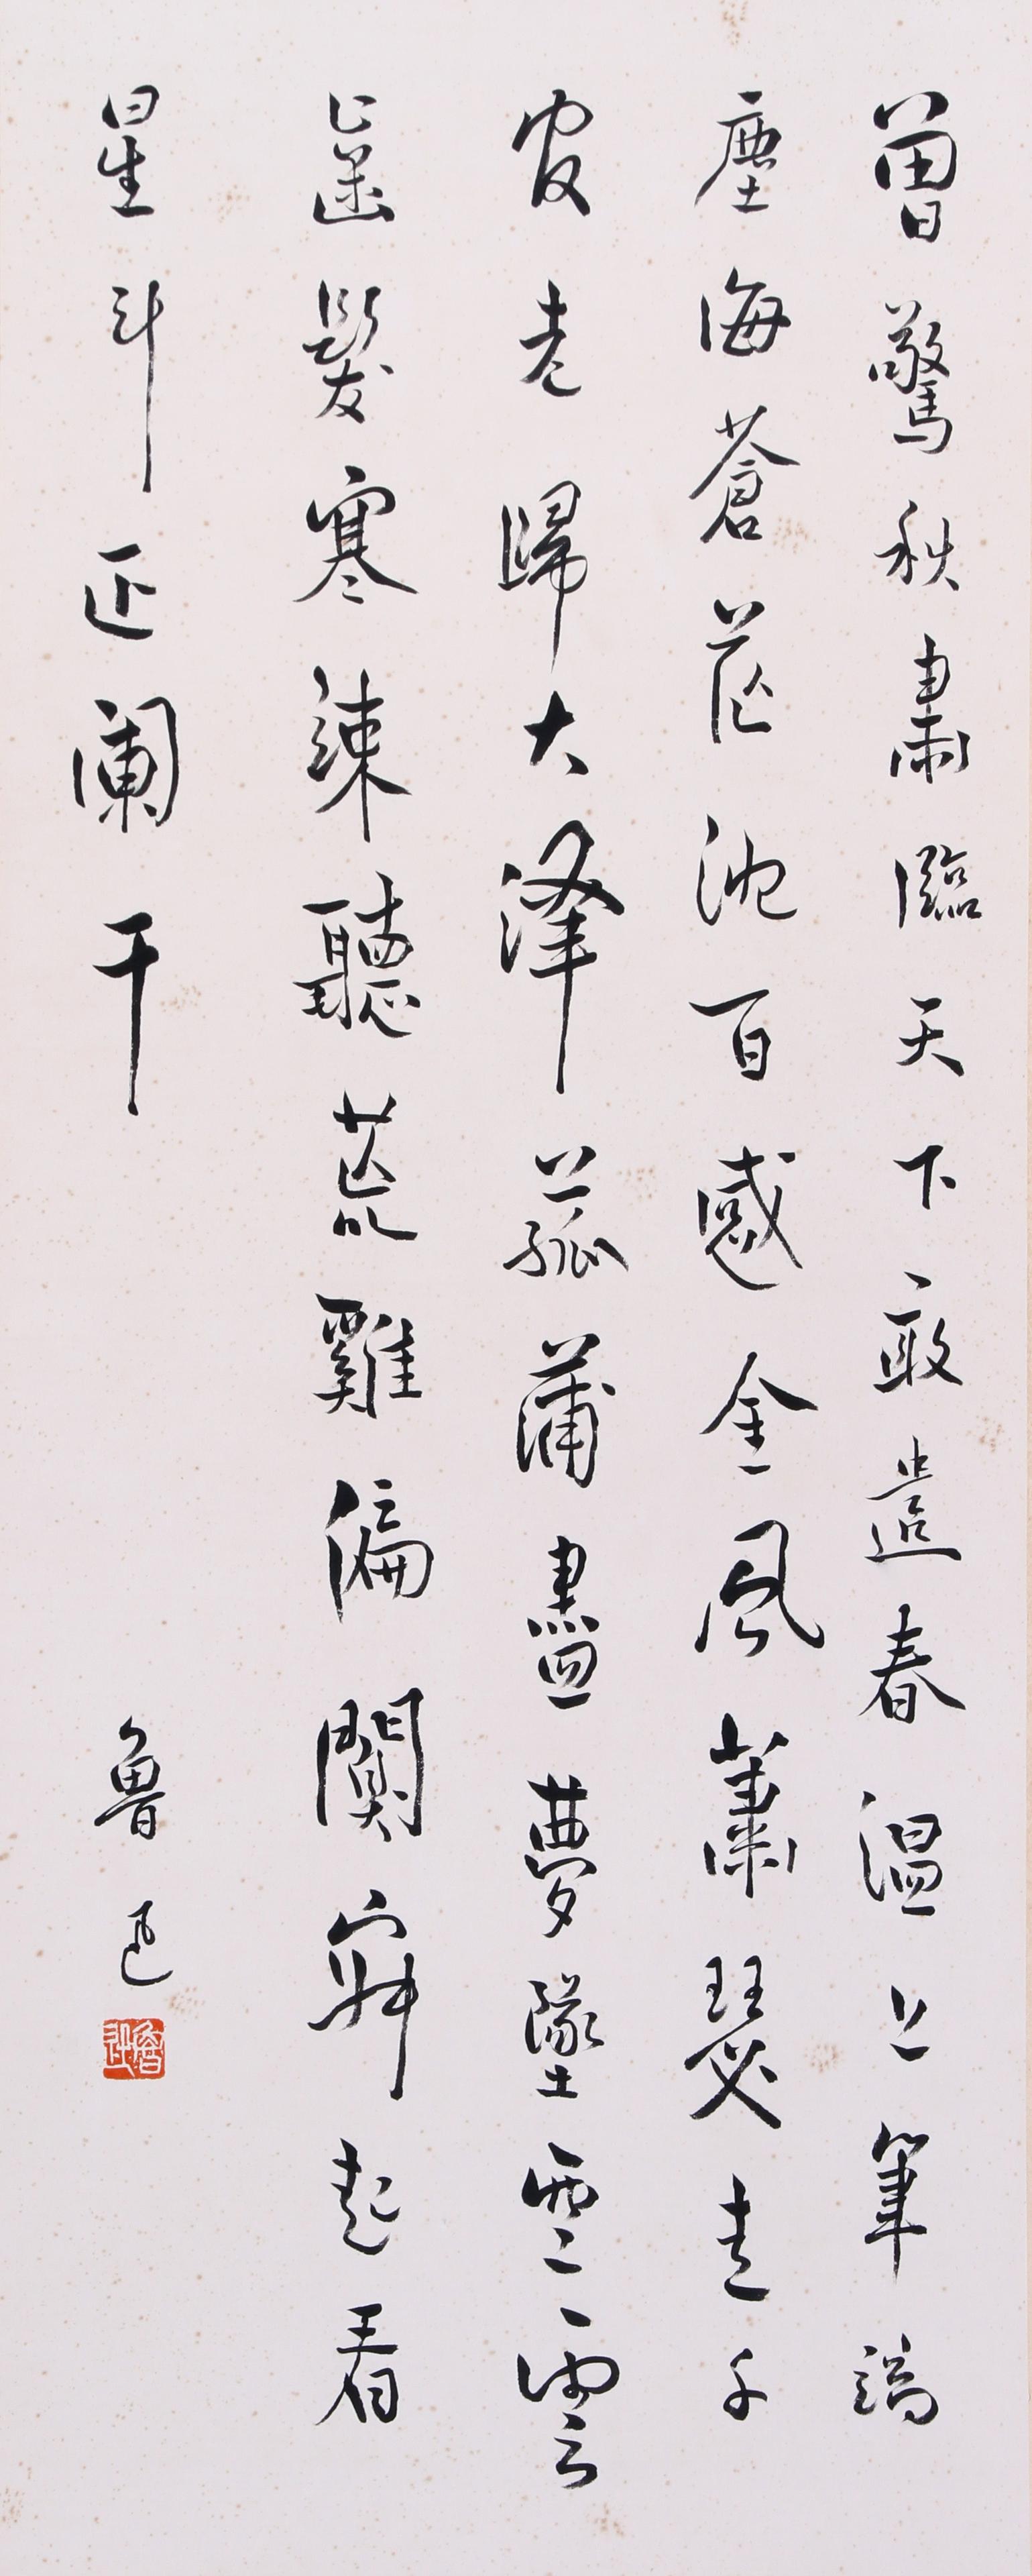 曾驚秋肅臨天下敢遣春溫上筆端
塵海蒼茫沈百感金風蕭瑟走千
官老歸大澤菰蒲盡夢墜空雲
齒髮寒竦聽荒雞偏闃寂起看
星斗正闌干
魯迅
魯迅